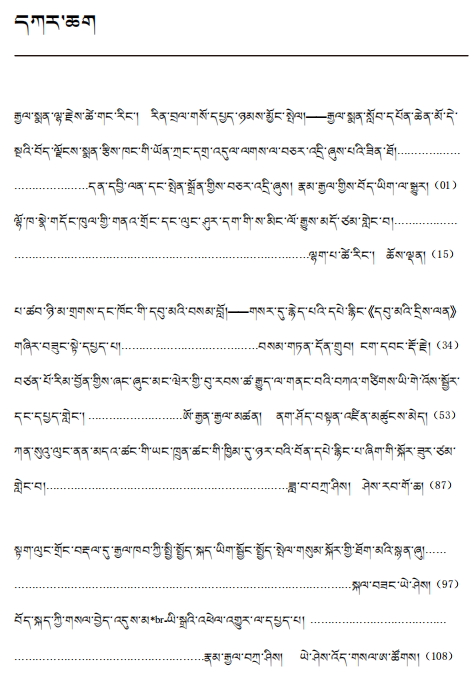 དཀར་ཆག
རྒྱལ་སྨན་ལྷ་རྗེས་ཚེ་གང་རིང་། རིན་བྲལ་གསོ་དཔྱད་ཉམས་མྱོང་སྤེལ།——རྒྱལ་སྨན་སློབ་དཔོན་ཆེན་མོ་དེ་
སྔའི་བོད་ལྗོངས་སྨན་རྩིས་ཁང་གི་ཡོན་ཀྲང་དགྲ་འདུལ་ལགས་ལ་བཅར་འདྲི་ཞུས་པའི་ཟིན་ཐོ།………………
…………………དན་དབྱི་ལན་དང་སྤེན་སྒྲོན་གྱིས་བཅར་འདྲི་ཞུས། རྣམ་རྒྱལ་གྱིས་བོད་ཡིག་ལ་སྒྱུར། (01)
ལྷོ་ཁ་སྣེ་གདོང་ཁུལ་གྱི་གནའ་གྲོང་དང་ལུང་ཤུར་དག་གི་ས་མིང་ལོ་རྒྱུས་མདོ་ཙམ་གླེང་བ།………………
…………………………………………………………………ལྷག་པ་ཚེ་རིང་། ཆོས་ལྡན། (15)
པ་ཚབ་ཉི་མ་གྲགས་དང་ཁོང་གི་དབུ་མའི་བསམ་བློ།——གསར་དུ་རྙེད་པའི་དཔེ་རྙིང་《དབུ་མའི་དྲིས་ལན》
གཞིར་བཟུང་སྟེ་དཔྱད་པ།…………………………………བསམ་གཏན་དོན་གྲུབ། ངག་དབང་རྡོ་རྗེ། (34)
བཙན་པོ་རིམ་བྱོན་གྱིས་ཞང་ཞུང་མང་ཝེར་གྱི་བུ་རབས་ཚ་རྒྱུད་ལ་གནང་བའི་བཀའ་གཙིགས་ཡི་གེ་འོས་སྦྱོར་
དང་དཔྱད་གླེང་། ………………………ཨོ་རྒྱན་རྒྱལ་མཚན། ནག་ཤོད་བསྟན་འཛིན་མཚུངས་མེད། (53)
ཀན་སུའུ་ལུང་ནན་མདའ་ཚང་གི་ཡང་ཁྲུན་ཚང་གི་ཁྱིམ་དུ་ཉར་བའི་བོན་དཔེ་རྙིང་པ་ཞིག་གི་སྐོར་ཟུར་ཙམ་
གླེང་བ།……………………………………………………………ཟླ་བ་བཀྲ་ཤིས། ཤེས་རབ་གོ་ཆ། (87)
སྟག་ལུང་གྲོང་བརྡལ་དུ་རྒྱལ་ཁབ་ཀྱི་སྤྱི་སྤྱོད་སྐད་ཡིག་སྦྱོང་སྤྱོད་སྤེལ་གསུམ་སྐོར་གྱི་ཐོག་མའི་སྙན་ཞུ།……
……………………………………………………………………………སྐལ་བཟང་ཡེ་ཤེས། (97)
བོད་སྐད་ཀྱི་གསལ་བྱེད་འདུས་མ*br-ཡི་སྒྲའི་འཕེལ་འགྱུར་ལ་དཔྱད་པ། …………………………………
………………………………………………རྣམ་རྒྱལ་བཀྲ་ཤིས། ཡེ་ཤེས་འོད་གསལ་ཨ་ཚོགས། (108)